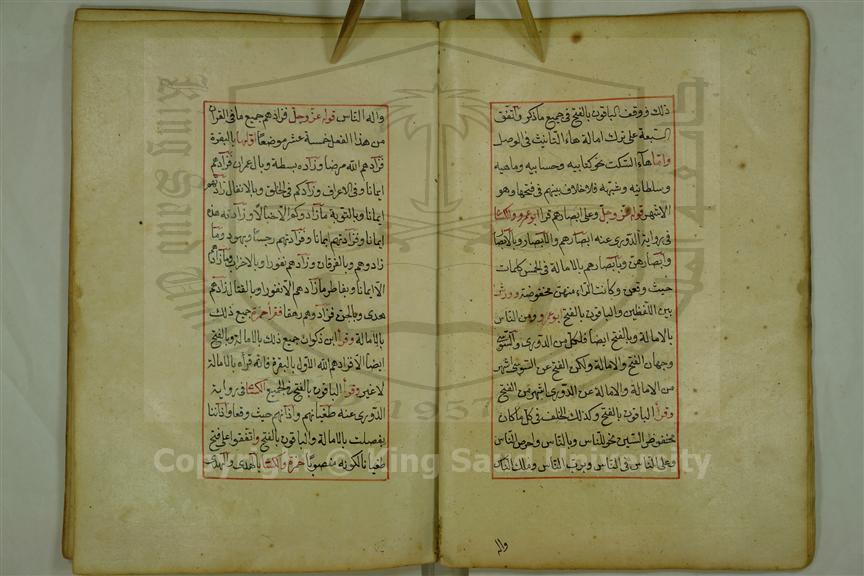 ذلك ووقف الباقون بالفتح في جميع ما ذكر واتفق
السبعة على ترك امالة هاء التانيث في الوصل
واما هاء السكت نحو كتابيه وحسابيه وماهيه
وسلطانيه وشبهه فلا خلاف بينهم في فتحها وهو
الاشهر قوله عز وجل وعلى ابصارهم قرا ابو عمرو والكسائي
في رواية الدوري عنه ابصارهم والابصار وبالابصار
وابصارهن وبابصارهم بالامالة في الخمس كلمات
حيث وقعن وكانت الراء منهن مخفوضة وورش
بين اللفظين والباقون بالفتح ابو عمرو ومن الناس
بالامالة وبالفتح ايضا فلكل من الدوري والسوسي
وجهان الفتح والامالة ولكن الفتح عن السوسي اشهر
من الامالة والامالة عن الدوري اشهر من الفتح
وقرا الباقون بالفتح وكذلك الخلف في كل ما كان
مخفوض السين نحو للناس وبالناس واحرص الناس
وعلى الناس في الناس وبرب الناس وملك الناس
واله
واله الناس قوله عز وجل فزادهم جميع ما في القران
من هذا الفعل خمسة عشر موضعا اولها بالبقرة
فزادهم الله مرضا وزاده بسطة وبال عمران فزادهم
ايمانا وفي الاعراف وزادكم في الخلق وبالانفال زادتهم
ايمانا وبالتوبة ما زادوكم الا خبالا وزادته هذه
ايمانا وفزادتهم ايمانا وفزادتهم رجسا وبهود وما
زادوهم وبالفرقان وزادهم نفورا وبالاحزاب وما زادهم
الا ايمانا وبفاطر ما زادهم الا نفورا وبالقتال زادهم
هدى وبالجن فزادوهم رهقا فقرا حمزة جميع ذلك
بالامالة وقرا ابن ذكوان جميع ذلك بالامالة وبالفتح
ايضا الا فزادهم الله الاول بالبقرة فانه قراه بالامالة
لا غير وقرا الباقون بالفتح في الجميع الكسائي في رواية
الدوري عنه طغيانهم واذانهم حيث وقعا واذاننا
بفصلت بالامالة والباقون بالفتح واتفقوا على فتح
طغيانا لكونه منصوبا حمزة والكسائي بالهدى والهدى
Copyright © King Saud University
King Saud University
1957